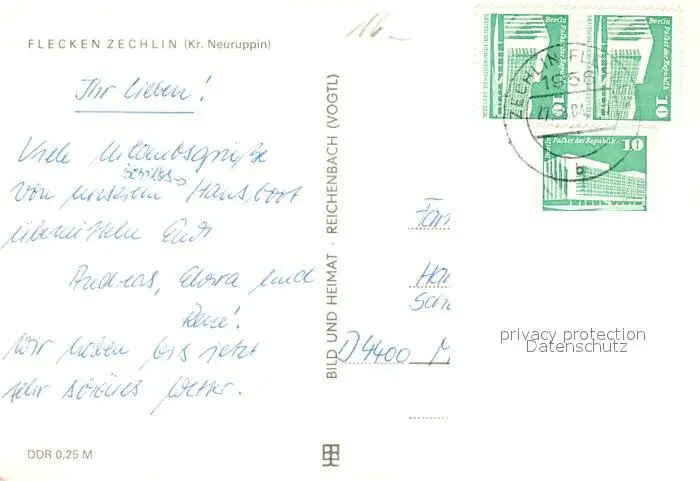 FLECKEN ZECHLIN (Kr. Neuruppin)
16.-
Ihr Lieben!
Viele Urlaubsgrüße
von unserem Hausboot
übermitteln Euch
Andreas, und
René!
Wir haben bis jetzt
sehr schönes Wetter.
DDR 0,25 M
BILD UND HEIMAT · REICHENBACH (VOGTL)
Fam
D 4400 M
Berlin Palast der Republik
10
Berlin Palast der Republik
10
Berlin Palast der Republik
10
ZECHLIN, FL
b
privacy protection
Datenschutz